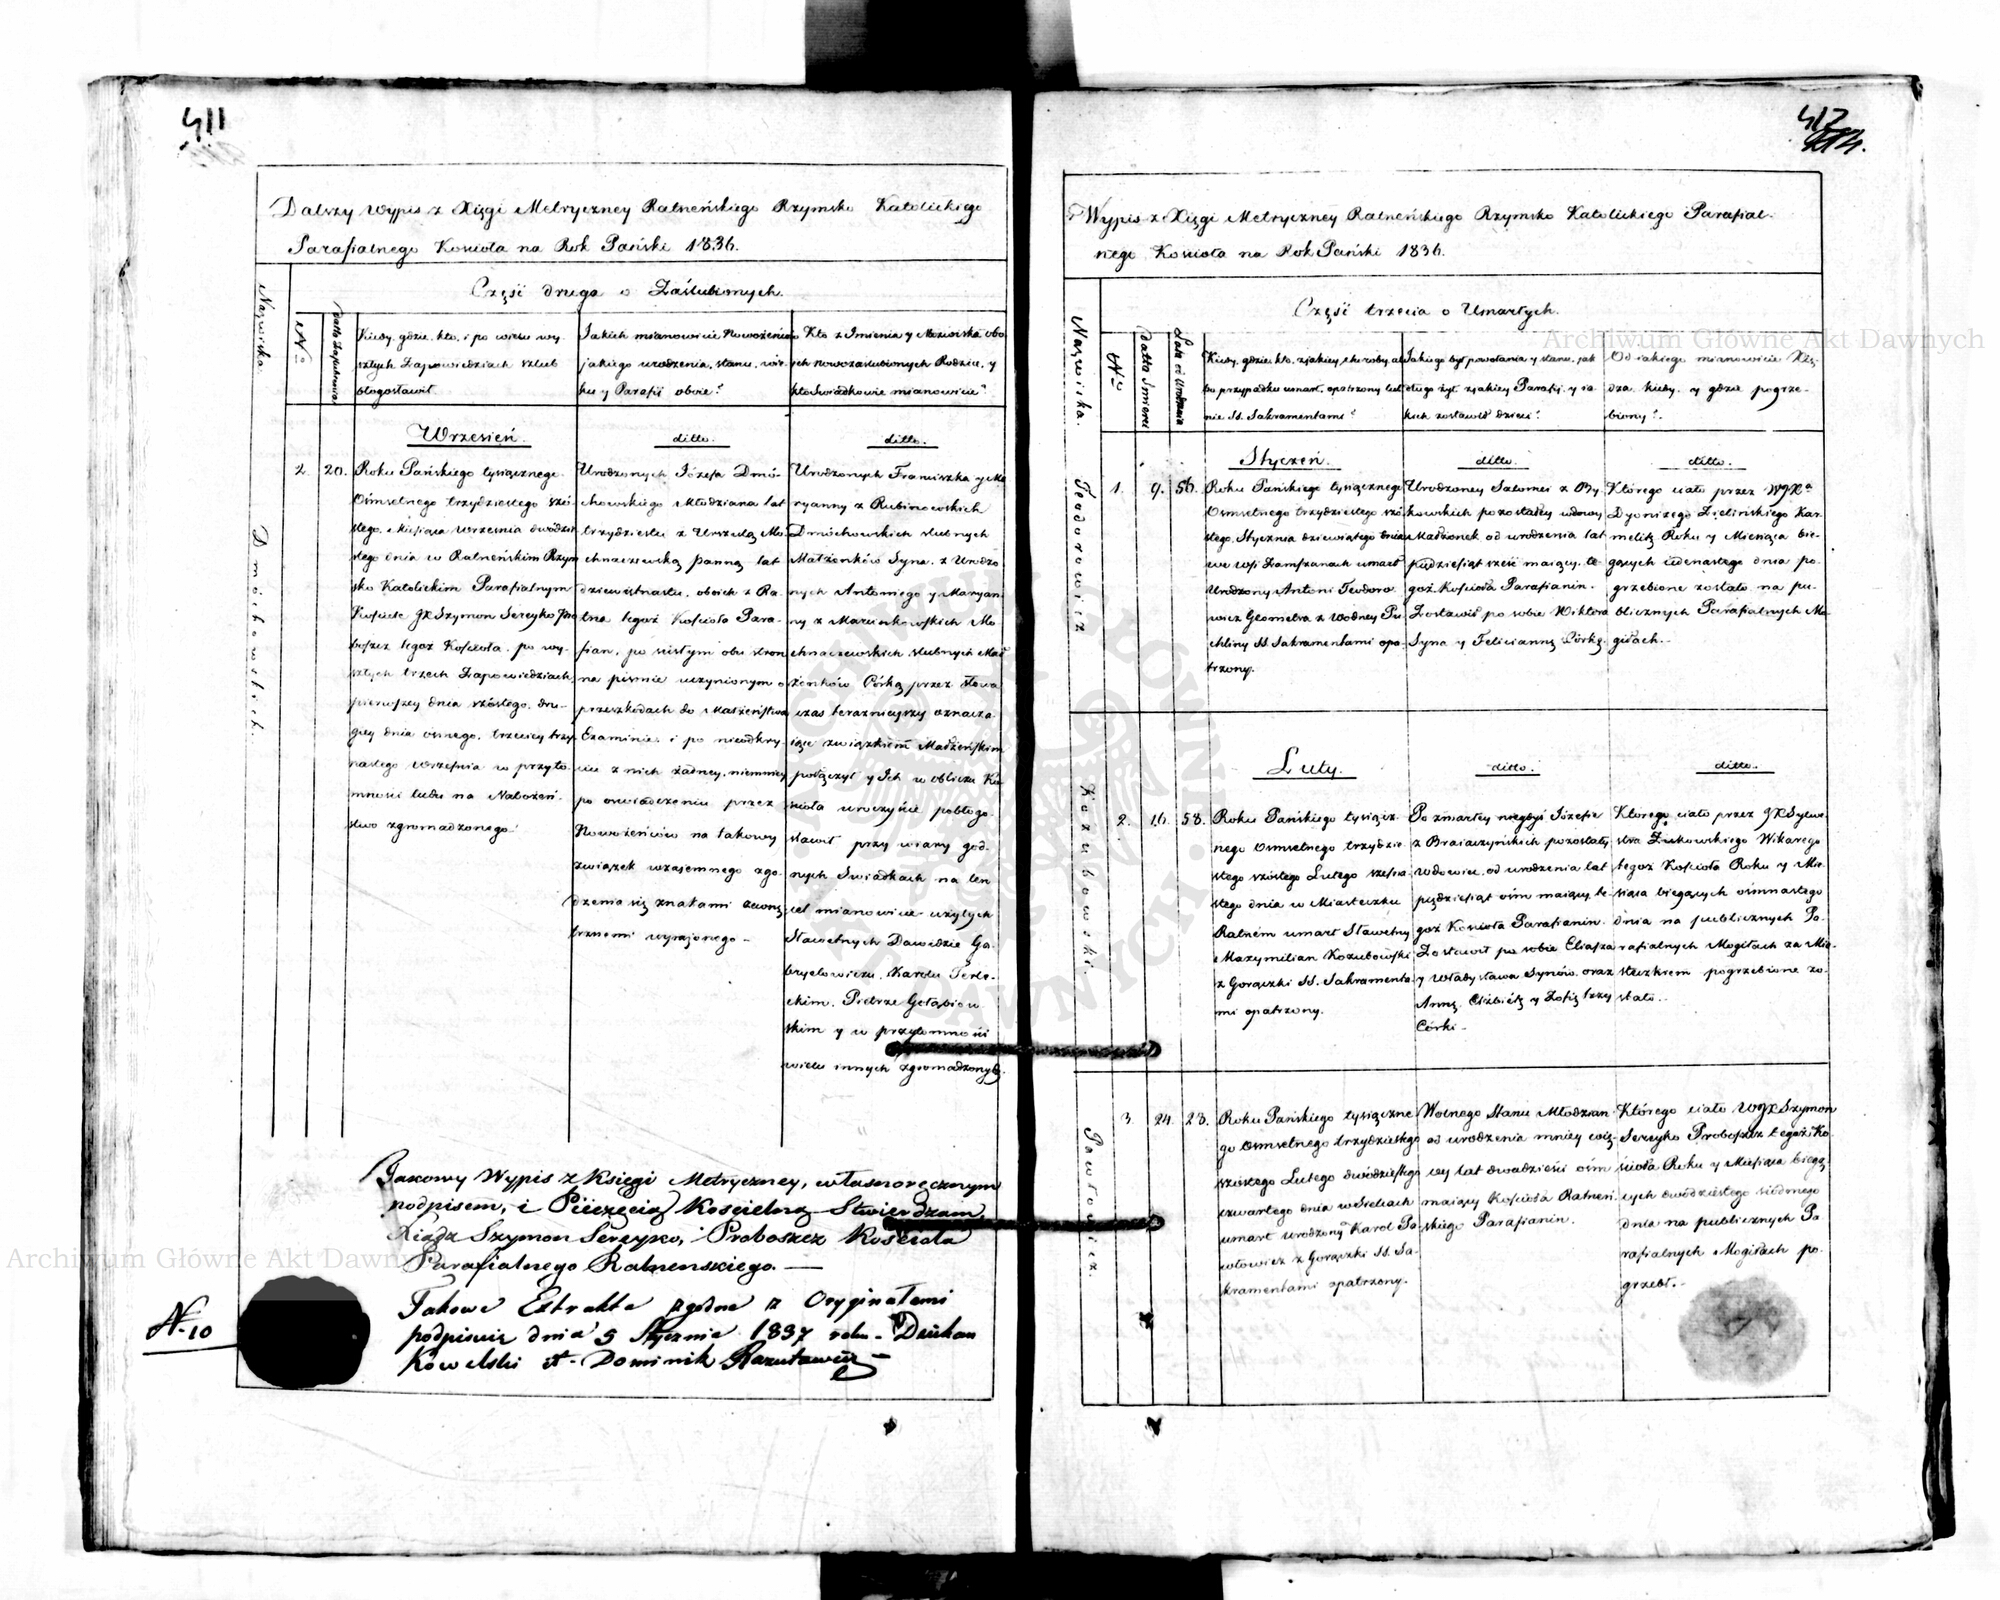 411
Dalszy Wypis z Xięgi Metryczney Ratneńskiego Rzymsko Katolickiego
Parafialnego Kościoła na Rok Pański 1836.
Część druga o Zaślubionych.
Nazwiska.
No
Datta Zaszlubowin
Kiedy, gdzie, kto, i po wielu wy-
szłych Zapowiedziach szlub
błogosławił.
Jakich mianowicie Nowożeńców
jakiego urodzenia, stanu, wie-
ku y Parafii oboie?
Kto z Imienia y Nazwiska obo-
ych nowozaślubionych Rodzice, y
kto Świadkowie mianowicie?
Dmóchowskich.
2. 20.
Wrzesień.
Roku Pańskiego tysiącznego
Ośmsetnego trzydziestego szó-
stego, Miesiąca Września dwódzie-
stego dnia w Ratneńskim Rzym
sko Katolickim Parafialnym
Kościele JX Szymon Sereyko Pro
boszcz tegoż Kościoła, po wy-
szłych trzech Zapowiedziach,
pierwszey dnia szóstego, dru-
giey dnia ósmego, trzeciey trzy-
nastego Września w przyto-
mności ludu na Nabożeń-
stwo zgromadzonego.
ditto.
Urodzonych Józefa Dmó-
chowskiego Młodziana lat
trzydziestu z Urszulą Mo-
chnaczewską panną lat
dziewiętnastu, oboich z Ra-
tna tegoż Kościoła Para-
fian, po ścisłym obu stron
na piśmie uczynionym o
przeszkodach do Małżeństwa
Examinie, i po nieodkry-
ciu z nich żadney, niemniey
po oświadczeniu przez
Nowożeńców na takowy
związek wzajemnego zgo-
dzenia się znakami zewnę-
trznemi wyrażonego -
ditto.
Urodzonych Franciszka y Ma
ryanny z Rubinowskich
Dmóchowskich ślubnych
Małżonków Syna, z Urodzo
nych Antoniego y Maryan-
ny z Marcinkowskich Mo-
chnaczewskich ślubnych Mał
żonków Córką, przez słowa
czas teraznieyszy oznacza-
iące związkiem Małżeńskim
połączył y Ich w obliczu Ko
ścioła uroczyście pobłogo-
sławił przy wiary god-
nych Świadkach na ten
cel mianowicie użytych
Sławetnych Dawidzie Ga-
bryelowiczu, Karolu Terle-
ckim, Pietrze Gołąbiow-
skim y w przytomności
wielu innych zgromadzonych.
Takowy Wypis z Księgi Metryczney, własnoręcznym
podpisem, i Pieczęcią Kościelną Stwierdzam
Xiądz Szymon Sereyko, Proboszcz Kościoła
Parafialnego Ratnenskiego. —
Takowe Extrakta zgodne z Oryginałemi
podpisuię dnia 5 Stycznia 1837 roku - Dziekan
Kowelski
N. 10
412
Wypis z Xięgi Metryczney Ratneńskiego Rzymsko Katolickiego Parafial-
nego Kościoła na Rok Pański 1836.
Część trzecia o Umarłych.
Nazwiska.
No
Datta Śmierci
Lata od Urodzenia
Kiedy, gdzie, kto, z jakiey choroby, al-
bo przypadku umarł, opatrzony lub
nie SS. Sakramentami?
Jakiego był powołania y stanu, jak
długo żył, z jakiey Parafii, y ia-
kich zostawił dzieci?
Od iakiego mianowicie Xię-
dza, kiedy, y gdzie pogrze-
biony?
Teodorowicz
1. 9. 56.
Styczeń.
Roku Pańskiego tysiącznego
Ośmsetnego trzydziestego szó-
stego, Stycznia dziewiątego dnia
we wsi Zamszanach umarł
Urodzony Antoni Teodoro-
wicz Geometra z wodney Pu-
chliny SS. Sakramentami opa-
trzony.
ditto.
Urodzoney Salomei z By-
kowskich pozostałey wdowy
Małżonek od urodzenia lat
piędziesiąt sześć maiący, te-
goż Kościoła Parafianin.
Zostawił po sobie Wiktora
Syna y Felicyannę Córkę.
ditto.
Którego ciało przez WJXa
Dyonizego Zielińskiego Kar-
melitę Roku y Miesiąca bie-
gących iedenastego dnia po-
grzebione zostało na pu-
blicznych Parafialnych Mo
giłach.-
Kozubowski.
2. 16. 58.
Luty.
Roku Pańskiego tysiącz-
nego Ośmsetnego trzydzie-
stego szóstego Lutego szesna-
stego dnia w Miasteczku
Ratném umarł Sławetny
Maxymilian Kozubowski
z Gorączki SS. Sakramenta-
mi opatrzony.
ditto.
Po zmarłey niegdyś Józefie
z Braiaczyńskich pozostały
wdowiec, od urodzenia lat
pięćdziesiąt ośm maiący, te-
goż Kościoła Parafianin.
Zostawił po sobie Eliasza
y Władysława Synów, oraz
Annę, Elżbiétę y Zofię trzy
Córki -
ditto.
Którego ciało przez JX Sylwe-
stra Żukowskiego Wikarego
tegoż Kościoła Roku y Mie-
siąca bieżących ośmnastego
dnia na publicznych Pa-
rafialnych Mogiłach za Mia-
steczkiem pogrzebione zo-
stało.-
Pawłowicz.
3. 24. 28.
Roku Pańskiego tysiączne
go Ośmsetnego trzydziestego
szóstego Lutego dwódziestego
czwartego dnia w Sielcach
umarł urodzony Karol Pa-
włowicz z Gorączki SS. Sa-
kramentami opatrzony.
Wolnego Stanu Młodzian
od urodzenia mniey wię-
cey lat dwadzieści ośm
maiący Kościoła Ratneń-
skiego Parafianin.
Którego ciało WJX Szymon
Sereyko Proboszcz tegoż Ko-
ścioła Roku y Miesiąca bieżą-
cych dwódziestego siódmego
dnia na publicznych Pa
rafialnych Mogiłach po-
grzebł.-
Archiwum Główne Akt Dawnych
Archiwum Główne Akt Dawnych